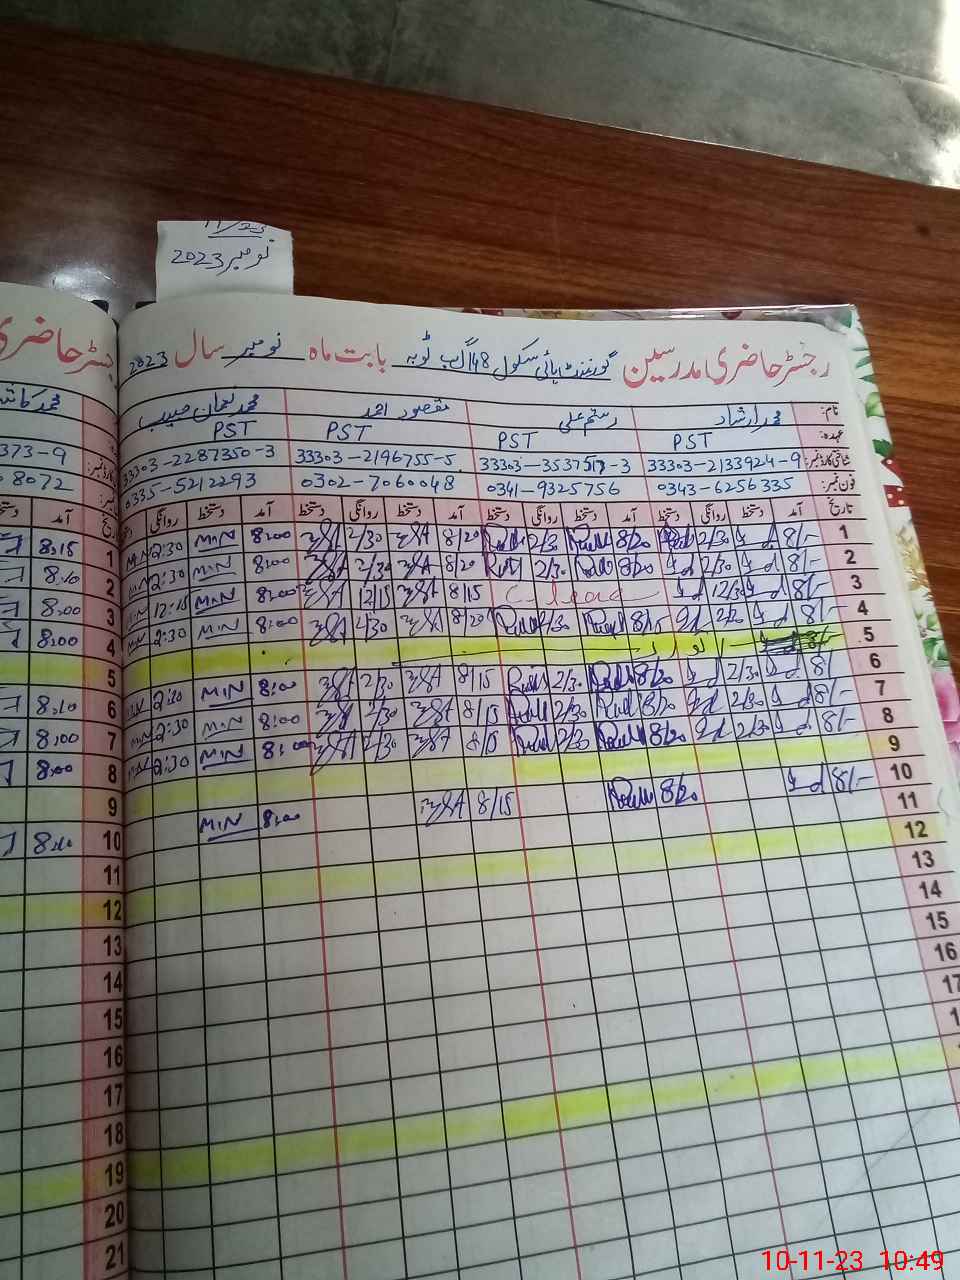 11/23
نومبر 2023
رجسٹر حاضری مدرسین گورنمنٹ ہائی سکول 148 گ ب ٹوبہ بابت ماہ نومبر سال 2023
نام: محمد ارشاد رستم علی مقصود احمد محمد نعمان حبیب
عہدہ: PST PST PST PST
شناختی کارڈ نمبر: 33303-2133924-9 33303-2196755-5 33303-2287350-3
فون نمبر: 0343-6256335 0341-9325756 0302-7060048 0335-5212293
تاریخ آمد دستخط روانگی دستخط آمد دستخط روانگی دستخط آمد دستخط روانگی دستخط آمد دستخط روانگی
1 8/- 2/30 8/20 2/30 8/20 2/30 8:00 MIN 2:30 MIN
2 8/- 2/30 8/20 2/30 8/20 2/30 8:00 MIN 2:30 MIN
3 8/- 12/30 C-leave 8/15 12/15 8:00 MIN 12:15 MIN
4 8/- 2/30 8/15 2/30 8/20 2/30 8:00 MIN 2:30 MIN
5 اتوار
6 8/- 2/30 8/20 2/30 8/15 2/30 8:00 MIN MIN
7 8/- 2/30 8/20 2/30 8/15 2/30 8:00 MIN 2:30 MIN
8 8/- 2/30 8/20 2/30 8/15 2/30 8:00 MIN 2:30 MIN
9
10 8/- 8/20 8/15 8:00 MIN
11
12
13
14
15
16
17
رجسٹر حاضری
373-9
8072
آمد
1 8:15
2 8:10
3 8:00
4 8:00
5
6 8:10
7 8:00
8 8:00
9
10 8:10
11
12
13
14
15
16
17
18
19
20
21
10-11-23 10:49